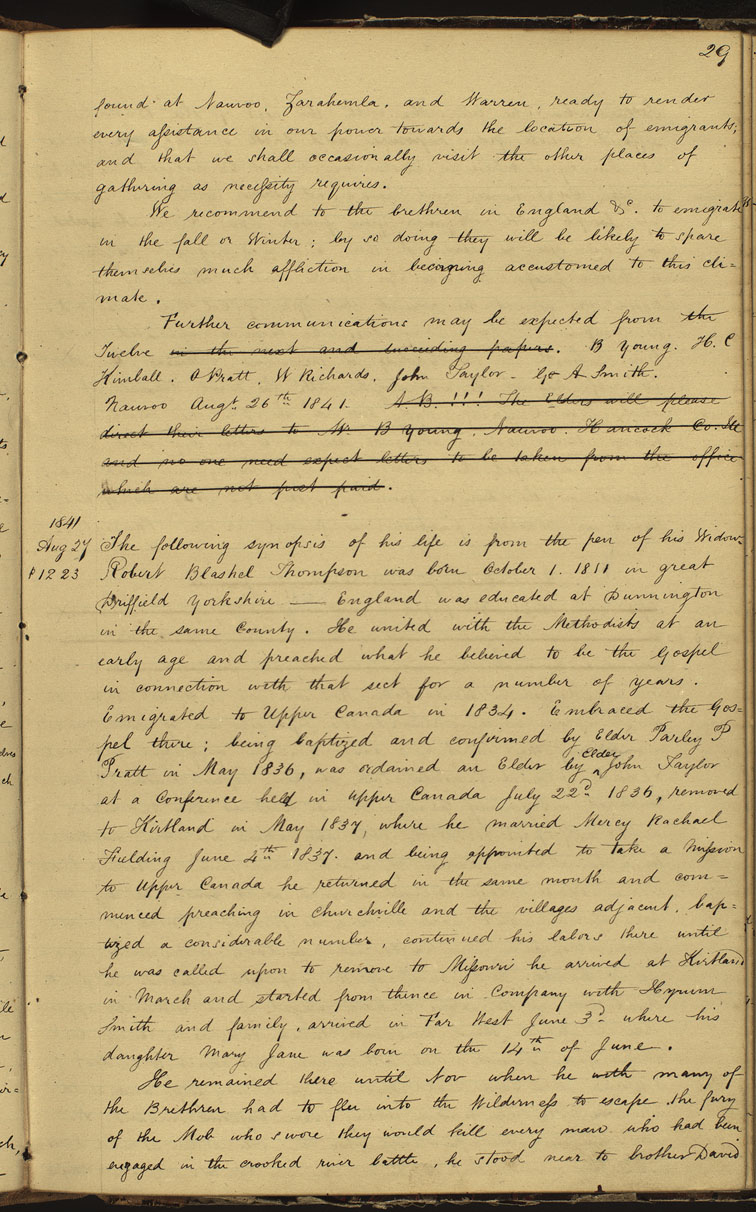 29
found at Nauvoo, Zarahemla, and Warren, ready to render
every assistance in our power towards the location of emigrants;
and that we shall occasionally visit the other places of
gathering as necessity requires.
We recommend to the brethren in England &c. to emigrate
in the fall or Winter; by so doing they will be likely to spare
themselves much affliction in becoming accustomed to this cli=
mate.
Further communications may be expected from the
Twelve in the next and succeeding papers. B Young. H. C
Kimball. O Pratt. W Richards. John Taylor - Go A Smith.
Nauvoo Augt. 26th 1841. N B. !!! The Elders will please
direct their letters to Mr. B Young, Nauvoo. Hancock Co. Ill
and no one need expect letters to be taken from the office
which are not post paid.
1841
Aug 27
P 1223
The following synopsis of his life is from the pen of his Widow-
Robert Blashel Thompson was born October 1. 1811 in great
Driffield Yorkshire — England was educated at Dunnington
in the same County. He united with the Methodists at an
early age and preached what he believed to be the Gospel
in connection with that sect for a number of years.
Emigrated to Upper Canada in 1834. Embraced the Gos=
pel there; being baptized and confirmed by Elder Parley P
Pratt in May 1836, was ordained an Elder by Elder John Taylor
at a Conference held in upper Canada July 22d 1836, removed
to Kirtland in May 1837, where he married Mercy Rachael
Fielding June 4th 1837. and being appointed to take a Mission
to Upper Canada he returned in the same month and com=
menced preaching in Churchville and the villages adjacent, bap=
tized a considerable number, continued his labors there until
he was called upon to remove to Missouri he arrived at Kirtland
in March and started from thence in Company with Hyrum
Smith and family, arrived in Far West June 3d where his
daughter Mary Jane was born on the 14th of June.
He remained there until Nov when he with many of
the Brethren had to flee into the Wilderness to escape the fury
of the Mob who swore they would kill every man who had been
engaged in the crooked river battle, he stood near to brother David